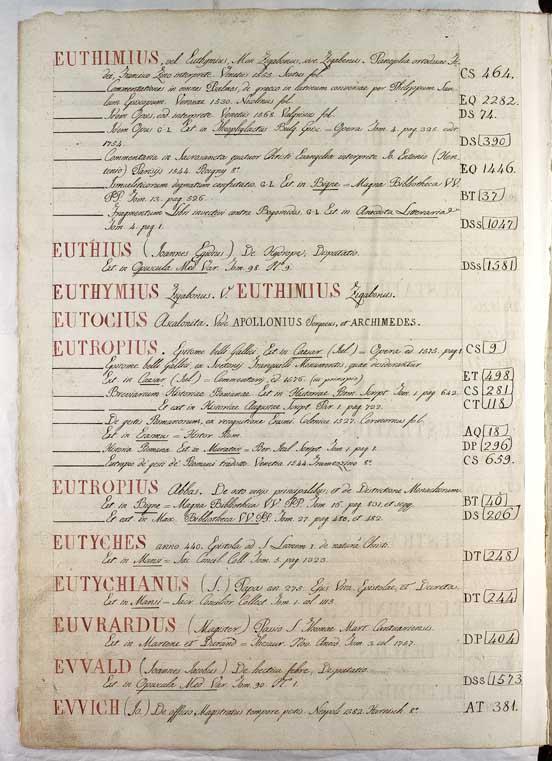 EUTHIMIUS, vel Euthymius, Mon. Zigabonus, sive Zigabenus. Panoplia orthodoxae Fi-
dei, Francisco Zino interprete. Venetiis fol. CS 464.
Commentationes in omnes Psalmos, de graeco in latinum conversae per Philippum Sau-
lum Episcopum. Veronae 1530. Nicolinus fol. EQ 2282.
Idem Opus, eod. interprete Venetiis 1568. fol. DS 74.
Idem Opus G.L. Est in Theophylactus Bulg. Epis. = Opera Tom. 4. pag. 325. edit.
1754. DS 390
Commentaria in Sacrosancta quatuor Christi Evangelia interprete Jo. Entenio (Hen-
tenio) Parisiis 1544. Roigny 8º EQ 1446.
Ismaeliticorum dogmatum confutatio. G.L. Est in Bigne = Magna Bibliotheca VV.
PP. Tom. 13. pag. 526. BT 37
Fragmentum Libri invectivi contra Bogomilos. G.L. Est in Anecdota Litteraria
Tom. 4. pag. 1. DSs 1047
EUTHIUS (Joannes Egidius) De Hydrope, Disputatio.
Est in Opuscula Med. Var. Tom. 98. Nº 9. DSs 1581
EUTHYMIUS Zigabonus. V. EUTHIMIUS Zigabonus.
EUTOCIUS Ascalonita. Vide APOLLONIUS Pergeus, et ARCHIMEDES.
EUTROPIUS. Epitome belli Gallici. Est in Caesar (Jul.) = Opera ed. 1575. pag. 1 CS 9
Epitome belli Gallici, ex Svetonii Tranquilli Monumentis, quae desiderantur.
Est in Caesar (Jul.) = Commentarii ed. 1576. (in principio) ET 498
Breviarium Historiae Romanae. Est in Historiae Rom. Script. Tom. 1. pag. 642. CS 281
Et ext. in Historiae Augustae Script. Par. 1. pag. 722. CT 118
De gestis Romanorum, ex recognitione Erasmi. Coloniae 1527. Cervicornus fol.
Est in Erasmus = Histor. Rom. AQ 18
Historia Romana. Est in Muratori = Rer. Ital. Script. Tom. 1. pag. 1. DP 296
Eutropio de' gesti de' Romani tradotto. Venetia 1544. Tramezzino 8º CS 659.
EUTROPIUS Abbas. De octo vitiis principalibus, et de Districtione Monachorum.
Est in Bigne = Magna Bibliotheca VV. PP. Tom. 15. pag. 801. et seqq. BT 40
Et ext. in Max. Bibliotheca VV. PP. Tom. 27. pag. 480. et 482. DS 206
EUTYCHES anno 440. Epistola ad S. Leonem 1. de natura Christi.
Est in Mansi = Sac. Concil. Coll. Tom. 5. pag. 1323. DT 248
EUTYCHIANUS (S.) Papa an. 275. Ejus Vita, Epistolae, et Decreta.
Est in Mansi = Sacr. Concilior. Collect. Tom. 1. col. 1113 DT 244
EUVRARDUS (Magister) Passio S. Thomae Mart. Cantuariensis.
Est in Martene et Durand = Thesaur. Nov. Anecd. Tom. 3. col. 1747. DP 404
EVVALD (Joannes Jacobus) De hectica febre, Disputatio.
Est in Opuscula Med. Var. Tom. 90. Nº 1. DSs 1573
EVVICH (Jo.) De officio Magistratus tempore pestis. Neapoli 1582. Harnisch 8º AT 381.